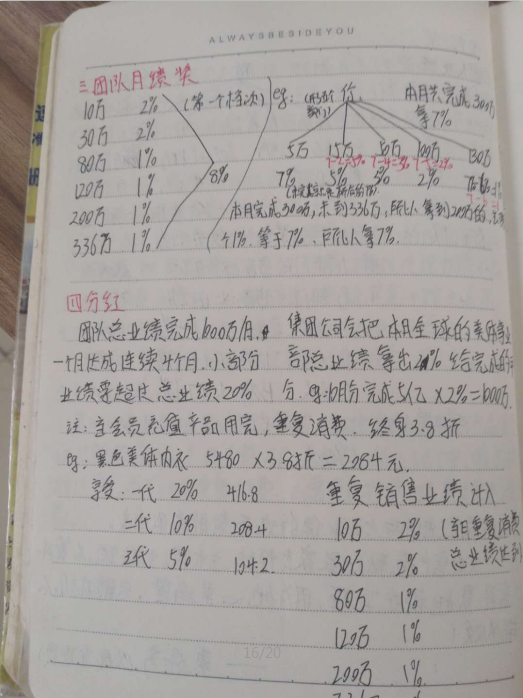 ALWAYSBESIDEYOU
三团队月绩奖
10万 2% (第一个档次)
30万 2%
80万 1%
120万 1%
200万 1%
336万 1%
8%
eg: 你 本月共完成300万
拿7%
5万 15万 50万 100万 130万
7-2=5% 7-5=2%
7% 5% 2%
本月完成300万,未到336万,所以拿到200万的,
个1%.等于7%.所以拿7%.
四分红
团队总业绩完成600万/月. 集团公司会把本月全球的美体事业
一个月达成连续4个月.小部分 部总业绩拿出2%给完成的
业绩要超过总业绩20% 分. eg:10月份完成5亿×2%=1000万.
注: 主会员充值产品用完,重复消费.终身3.8折
eg:黑色美体内衣 5480×3.8折=2084元.
享受:一代 20% 416.8 重复销售业绩计入
二代 10% 208.4 10万 2% (当月重复消费
三代 5% 104.2. 30万 2% 总业绩达到
80万 1%
120万 1%
200万 1%
16/20